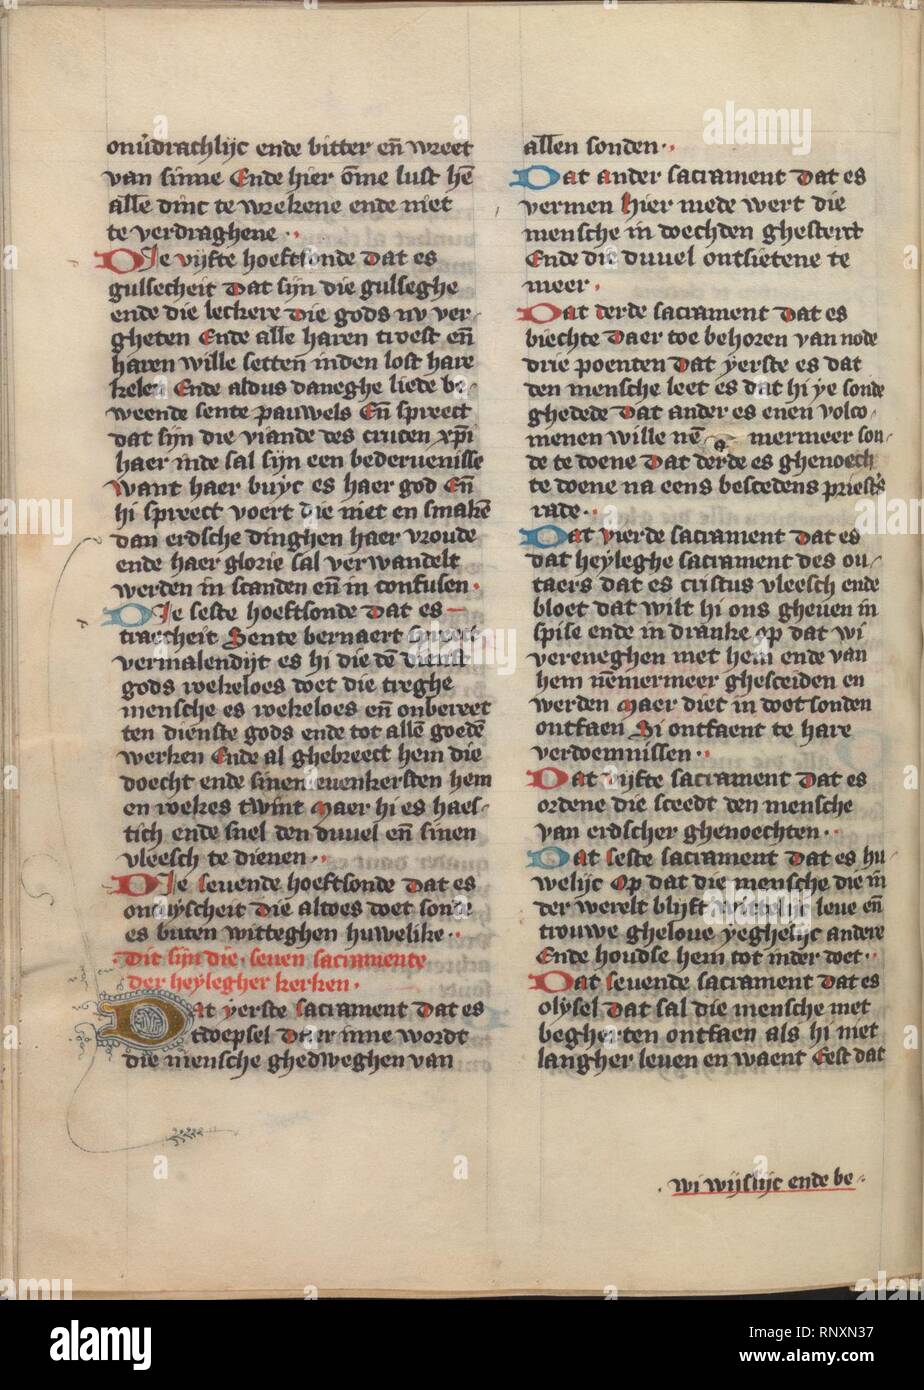 onv̄drachlijc ende bitter en̄ wreet
van sinne Ende hier ōme lust hē
alle dinc te wrekene ende niet
te verdraghene
Die vijfte hoeftsonde dat es
gulsecheit Dat sijn die gulseghe
ende die leckere Die gods nv ver
gheten Ende alle haren troest en̄
haren wille setten inden lost hare
kelen Ende aldus daneghe liede be
weende sente pauwels En̄ spreect
dat sijn die viande des crucen xp̄i
haer inde sal sijn een bederuenisse
want haer buyc es haer god En̄
hi spreect voert die niet en smakē
dan erdsche dinghen haer vroude
ende haer glorie sal verwandelt
werden in scanden en̄ in confusen
Die seste hoeftsonde Dat es
traecheit Sente bernaert spreect
vermalendijt es hi die dē dienst
gods roekeloes doet die treghe
mensche es roekeloes en̄ onbereet
ten dienste gods ende tot allē goedē
werken Ende al ghebreect hem die
doecht ende sinen euenkersten hem
en roekes twint Maer hi es haes
tich ende snel den duuel en̄ sinen
vleesch te dienen
Die seuende hoeftsonde dat es
oncuyscheit Die altoes doet sonde
es buten witteghen huwelike
Dit sijn die seuen sacramente
der heylegher kerken
Dat yerste sacrament dat es
doepsel Daer inne wordt
die mensche ghedweghen van
allen sonden
Dat ander sacrament dat es
vermen Hier mede wert die
mensche in doechden ghesterct
Ende die duuel ontsietene te
meer
Dat derde sacrament dat es
biechte Daer toe behoren van node
drie poenten Dat yerste es dat
den mensche leet es dat hi ye sonde
ghedede Dat ander es enen volco
menen wille nē mermeer son
de te doene Dat derde es ghenoech
te doene na eens bescedens priesters
rade
Dat vierde sacrament dat es
dat heyleghe sacrament des ou
taers dat es cristus vleesch ende
bloet dat wilt hi ons gheuen in
spise ende in dranke op dat wi
vereneghen met hem ende van
hem nēmermeer ghesceiden en
werden Maer diet in doetsonden
ontfaen Si ontfaent te hare
verdoemnissen
Dat vijfte sacrament dat es
ordene die sceedt den mensche
van erdscher ghenoechten
Dat seste sacrament dat es hu
welijc Op dat die mensche die in̄
der werelt blijft wittelijc leue en̄
trouwe gheloue yeghelijc andere
Ende houdse hem tot inder doet
Dat seuende sacrament dat es
olysel Dat sal die mensche met
begherten ontfaen als hi niet
langher leuen en waent Eest dat
wi wijslijc ende be
alamy
Image ID: RNXN37
www.alamy.com